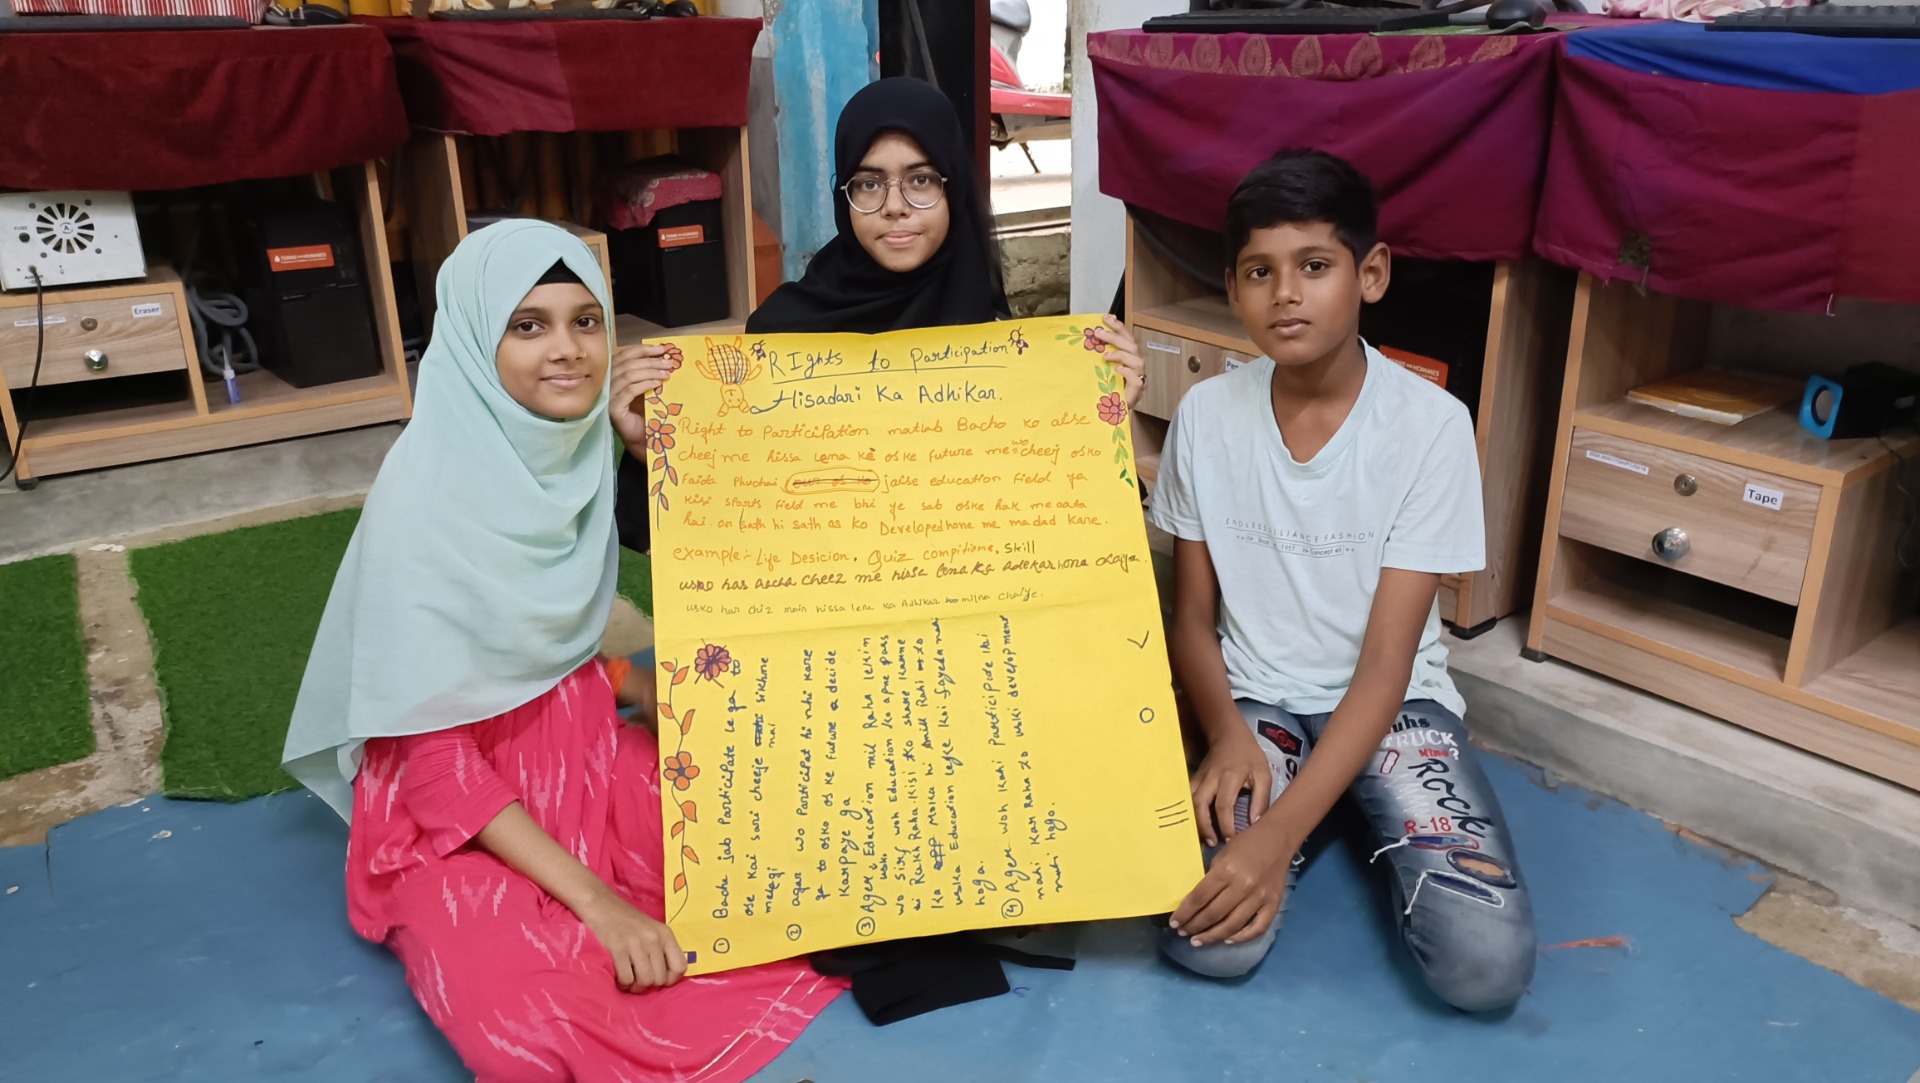 RIghts to Participation
Hisadari Ka Adhikar.
Right to Participation matlab Bacho ko aise
cheej me hissa Lena ke os ke future me wo cheej osko
faida Phuchai jaise education field ya
kisi sports field me bhi ye sab oske hak me aata
hai. or sath hi sath os ko Developed hone me madad kare.
example:- Life Desicion, Quiz compitione, Skill
usko har Accha cheez me hissa lena ka Adhikar hona chaiye.
usko har chiz main hissa lene ka Adhikar milna chaiye.
① Bache jab Participate le ga to
ose kai sari cheeje sikhne
melegi
② agar wo Participat hi nhi kare
ga to osko os ke future a decide
karpaye ga
③ Ager Education mil Raha lekin
wo sirf woh Education ko apne pas
hi Rakh Raha kisi ko share karne
ka moka hi nhi mill Rahi to
uska Education leke koi fayeda nahi
hoga.
④ Ager woh kahi Participate hi
nahi kar Raha to uski development
nahi hogo.
Eraser
Tape
TERRE DES HOMMES
TERRE DES HOMMES
ENDLESS ALLIANCE FASHION
TRUCK
ROCK
R-18
FUSE